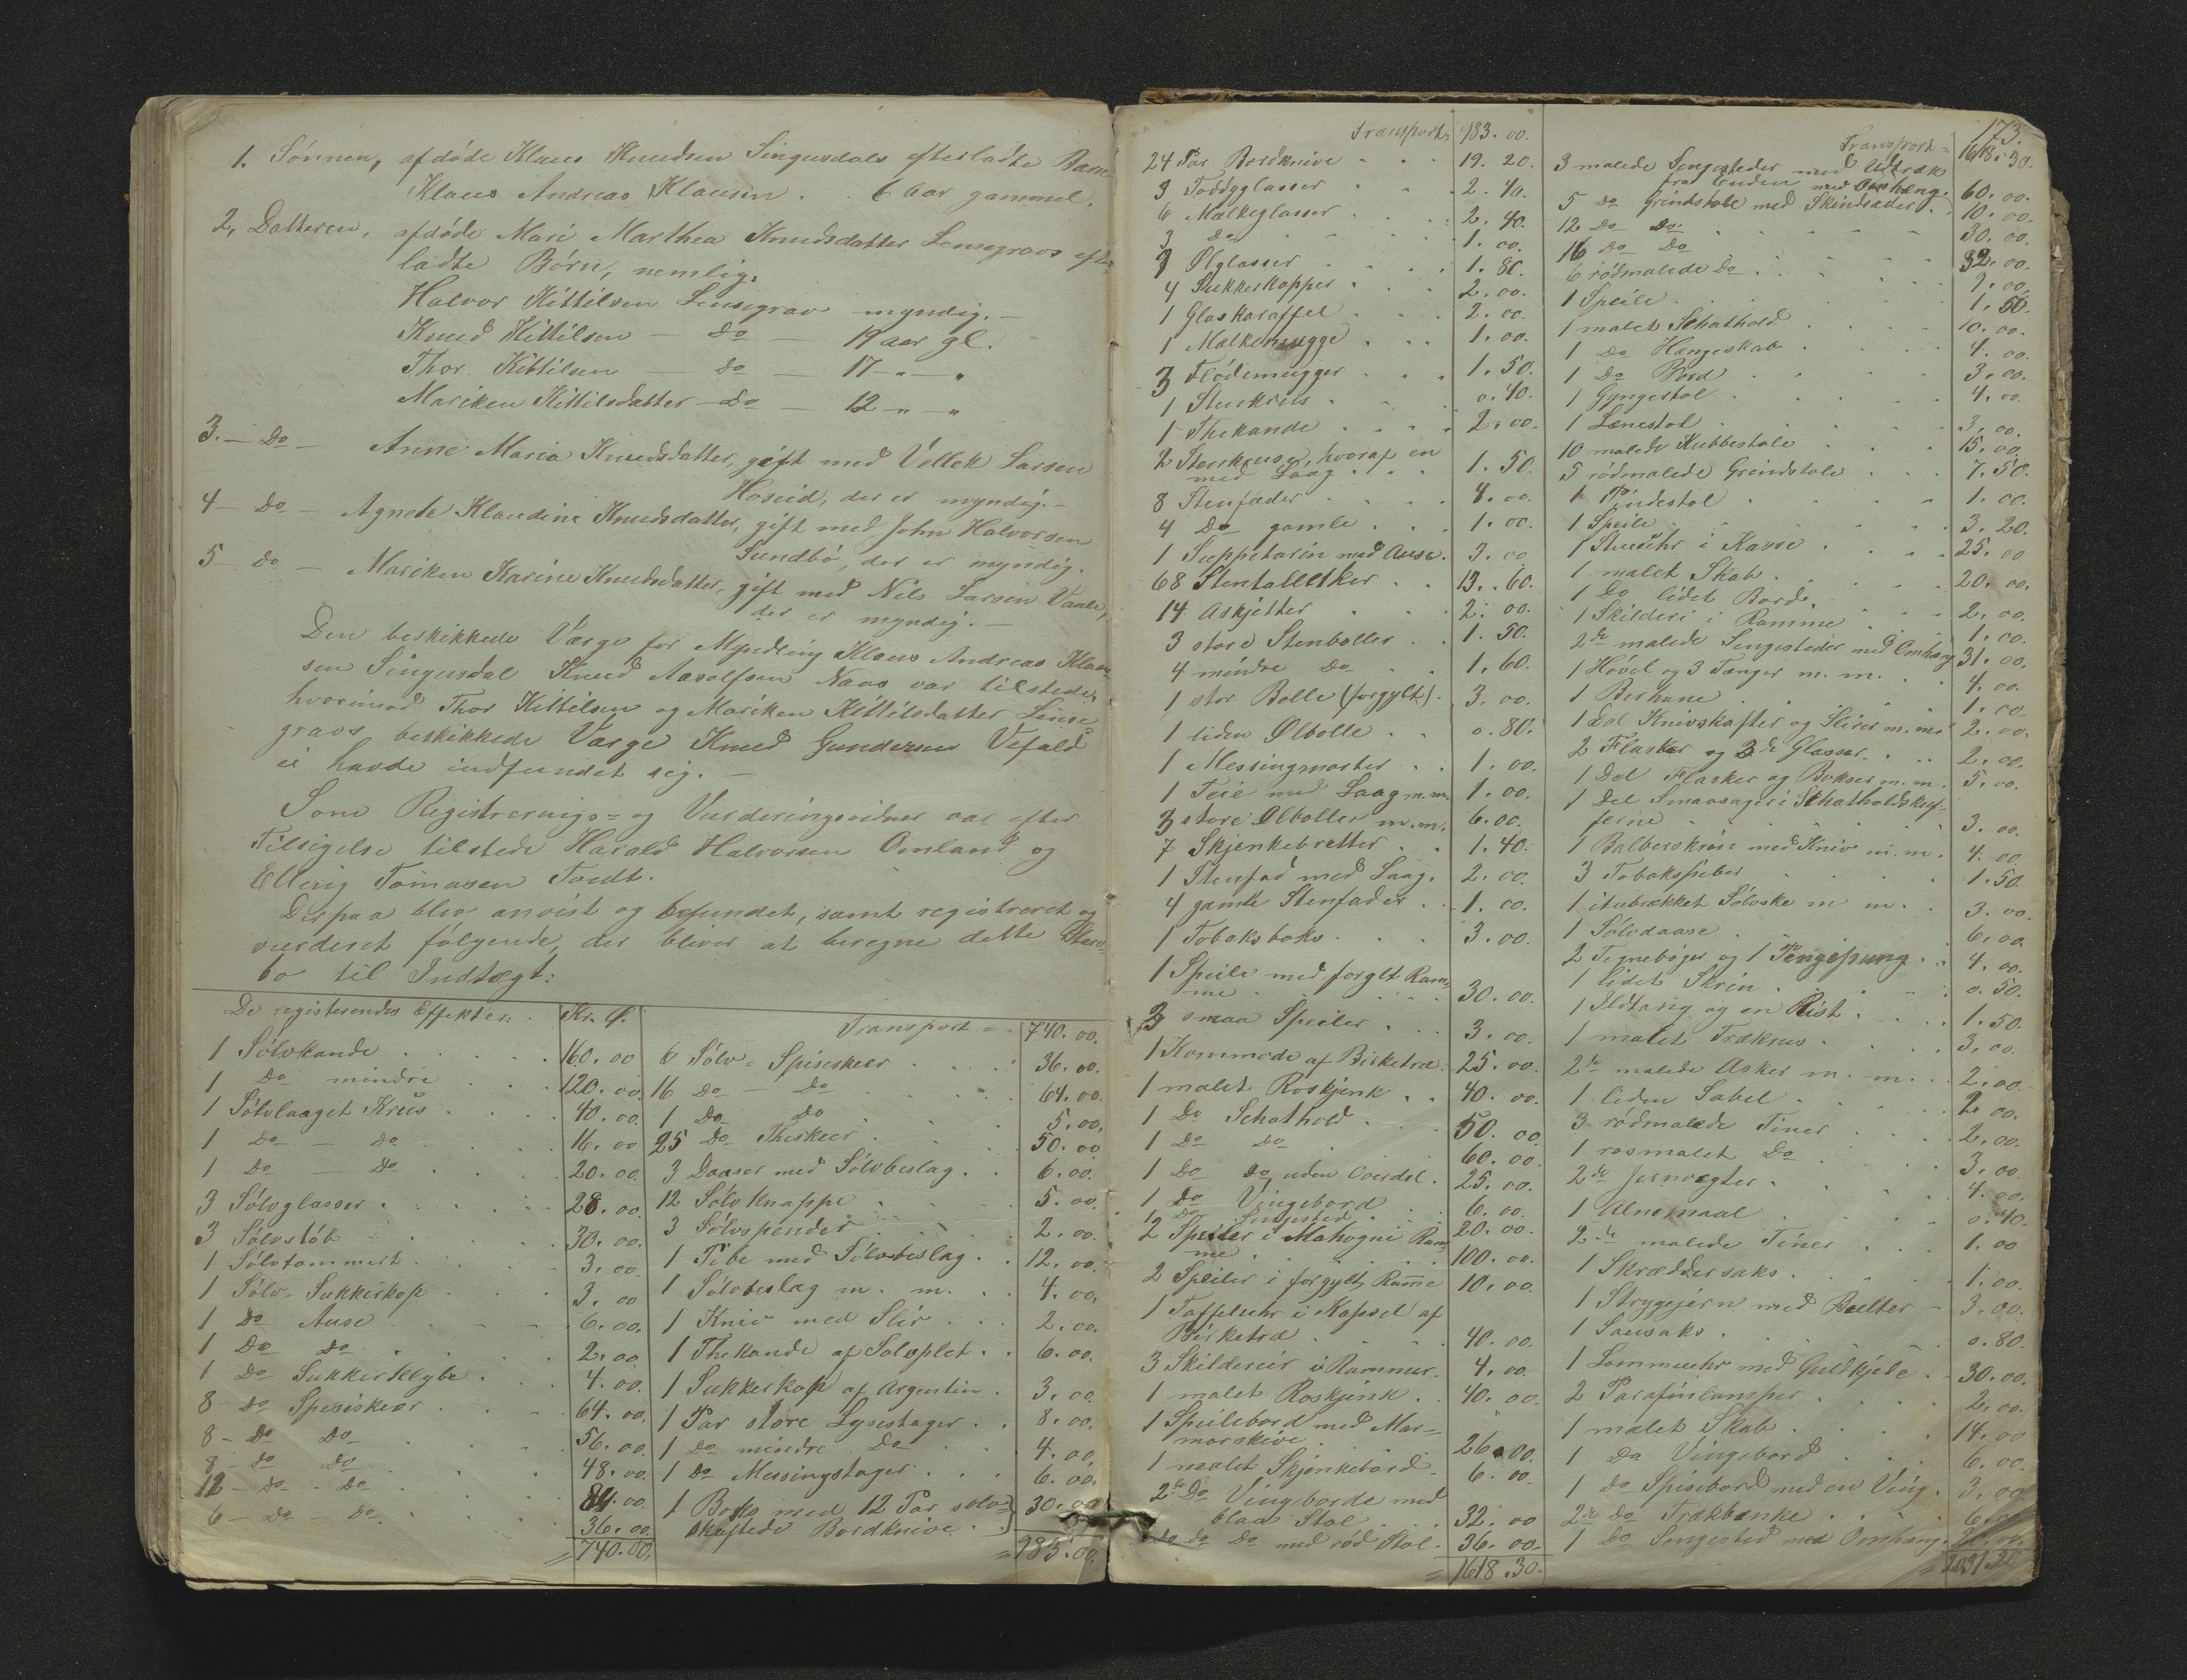 1. Sønnen, afdøde Klaus Knudsen Singusdals efterladte Barn
Klaus Andreas Klausen . 6 aar gammel.
2, Datteren, afdøde Mari Marthea Knudsdatter Lensegravs efter
ladte Børn, nemlig:
Halvor Kittilsen Lensegrav myndig. –
Knud Kittilsen – Do – 19 aar gl.
Thor Kittilsen – Do – 17 – " – "
Mariken Kittilsdatter – Do – 12 – " – "
3. – Do – Anne Maria Knudsdatter, gift med Vellek Larsen
Hoseid, der er myndig. –
4 – Do – Agnete Klaudine Knudsdatter, gift med John Halvorsen
Sundbø, der er myndig.
5 – Do – Mariken Karine Knudsdatter, gift med Nils Larsen Vaale,
der er myndig. –
Den beskikkede Værge for Myndling Klaus Andreas Klau-
sen Singusdal Knud Aasolfsen Naas var tilstede,
hvorimod Thor Kittilsen og Mariken Kittilsdatter Lense
gravs beskikkede Værge Knud Gundersen Vefald
ei havde indfundet sig. –
Som Registrerings- og Vurderingsvidner var efter
Tilsigelse tilstede Harald Halvorsen Omland og
Elling Tomasen Tvedt.
Derpaa blev anvist og befundet, samt registreret og
vurderet følgende, der bliver at beregne dette Stærv-
bo til Indtægt:
De registerendes Effekter: Kr. Ø.
1 Sølvkande 160. 00
1 Do mindre 120. 00
1 Sølvlaaget Krus 40. 00
1 Do – Do 16. 00
1 Do – Do 20. 00
3 Sølvglasser 28. 00
3 Sølvstøb 30. 00
1 Sølvtommert 3. 00
1 Sølv-Sukkerkop 3. 00
1 Do Ause 6. 00
1 Do Do 2. 00
1 Do Sukkerklybe 4. 00
8 – Do Spiseskeer 64. 00
8 – Do Do 56. 00
8 – Do Do 48. 00
12 – Do Do 84. 00
6 – Do – Do 36. 00
= 740. 00
Transport = 740. 00
6 Sølv-Spiseskeer 36. 00
16 Do – Do 64. 00
1 Do Do 5. 00
25 Do Theskeer 50. 00
3 Daaser med Sølvbeslag 6. 00
12 Sølv Knappe 5. 00
3 Sølvspender 2. 00
1 Pibe med Sølvbeslag 12. 00
1 Sølvbeslag m. m. 4. 00
1 Kniv med Slir 2. 00
1 Thekande af Sølvplet 6. 00
1 Sukkerkop af Argentin 3. 00
1 Par store Lysestager 8. 00
1 Do mindre Do 4. 00
1 Do Messingstager 6. 00
1 Boks med 12 Par sølv-
skaftede Bordknive 30. 00
= 983. 00
Transport = 983. 00
24 Par Bordknive 19. 20
3 Toddyglasser 2. 40
6 Mælkeglasser 2. 40
3 Do 1. 00
9 Ølglasser 1. 80
4 Sukkerkopper 2. 00
1 Glaskaraffel 2. 00
1 Mælkemugge 1. 00
3 Flødemugger 1. 50
1 Stenkrus 0. 40
1 Thekande 2. 00
2 Stenkruse, hvoraf en
med Laag 1. 50
8 Stenfader 4. 00
4 Do gamle 1. 00
1 Suppetarin med Ause 3. 00
68 Stentallerker 13. 60
14 Askjetter 2. 00
3 store Stenboller 1. 50
4 mindre Do 1. 60
1 stor Bolle (forgylt) 3. 00
1 liden Ølbolle 0. 80
1 Messingmorter 1. 00
1 Teie med Laag m. m. 1. 00
3 store Ølboller m. m. 6. 00
7 Skjenkebretter 1. 40
1 Stenfad med Laag 2. 00
4 gamle Stenfader 1. 00
1 Tobaksboks 3. 00
1 Speile med forglt Ram-
me 30. 00
3 smaa Speiler 3. 00
1 Kommode af Birketræ 25. 00
1 malet Roskjenk 40. 00
1 Do Schathold 50. 00
1 Do Do 60. 00
1 Do Do uden Overdel 25. 00
1 Do Vingebord 6. 00
1 Do Sengested 20. 00
2 Speiler i Mahogni Ram
me 100. 00
2 Speiler i forgylt Ramme 10. 00
1 Taffeluhr i Kapsel af
Birketræ 40. 00
3 Skilderier i Rammer 4. 00
1 malet Roskjenk 40. 00
1 Speilebord med Mar-
morskive 26. 00
1 malet Skjenkebord 6. 00
2de Do Vingeborde med
blaa Stol 32. 00
Do Do Do med rød Stol 36. 00
= 1618. 30
173.
Transport = 1618. 30
3 malede Sengesteder med Udtræk
fra Enden med Omhæng 60. 00
5 Do Grindstole med Skindsæder 10. 00
12 Do Do 30. 00
16 Do Do 32. 00
6 rødmalede Do 9. 00
1 Speile 1. 50
1 malet Schathold 10. 00
1 Do Hængeskab 4. 00
1 Do Bord 3. 00
1 Gyngestol 4. 00
1 Lænestol 3. 00
10 malede Kubbestole 15. 00
5 rødmalede Grindstole 7. 50
1 Pindestol 1. 00
1 Speile 3. 20
1 Stueuhr i Kasse 25. 00
1 malet Skab 20. 00
1 Do lidet Bord 2. 00
1 Skilderi i Ramme 1. 00
2de malede Sengesteder med Omhæng 31. 00
1 Høvel og 3 Tænger m. m. 4. 00
1 Berhane 1. 00
1 Del Knivskafter og Slirer m. m. 2. 00
2 Flasker og 3de Glasser 2. 00
1 Del Flasker og Bokser m. m. 5. 00
1 Del Smaasager i Schatholdskuf-
ferne 3. 00
1 Balberskrin med Kniv m. m. 4. 00
3 Tobakspiber 1. 50
1 itubrækket Sølvske m m. 3. 00
1 Sølvdaase 6. 00
2 Tegnebøger og 1 Pengepung 4. 00
1 lidet Skrin 0. 50
1 Ildtang og en Rist 1. 50
1 malet Trækrus 3. 00
2de malede Asker m. m. 2. 00
1 liden Sabel 2. 00
3 rødmalede Tiner 2. 00
1 rosmalet Do 3. 00
2de Jernvægter 4. 00
1 Alnemaal 0. 40
2de malede Tiner 1. 00
1 Skræddersaks 1. 00
1 Strygejern med Bolter 3. 00
1 Sausaks 0. 80
1 Lommeuhr med Guldkjede 30. 00
2 Parafinlamper 2. 00
1 malet Skab 14. 00
1 Do Vingebord 6. 00
1 Do Spisebord med en Ving 3. 00
2de Do Trækbænke 6. 00
1 Do Sengested med Omhæng
= 2031. 20